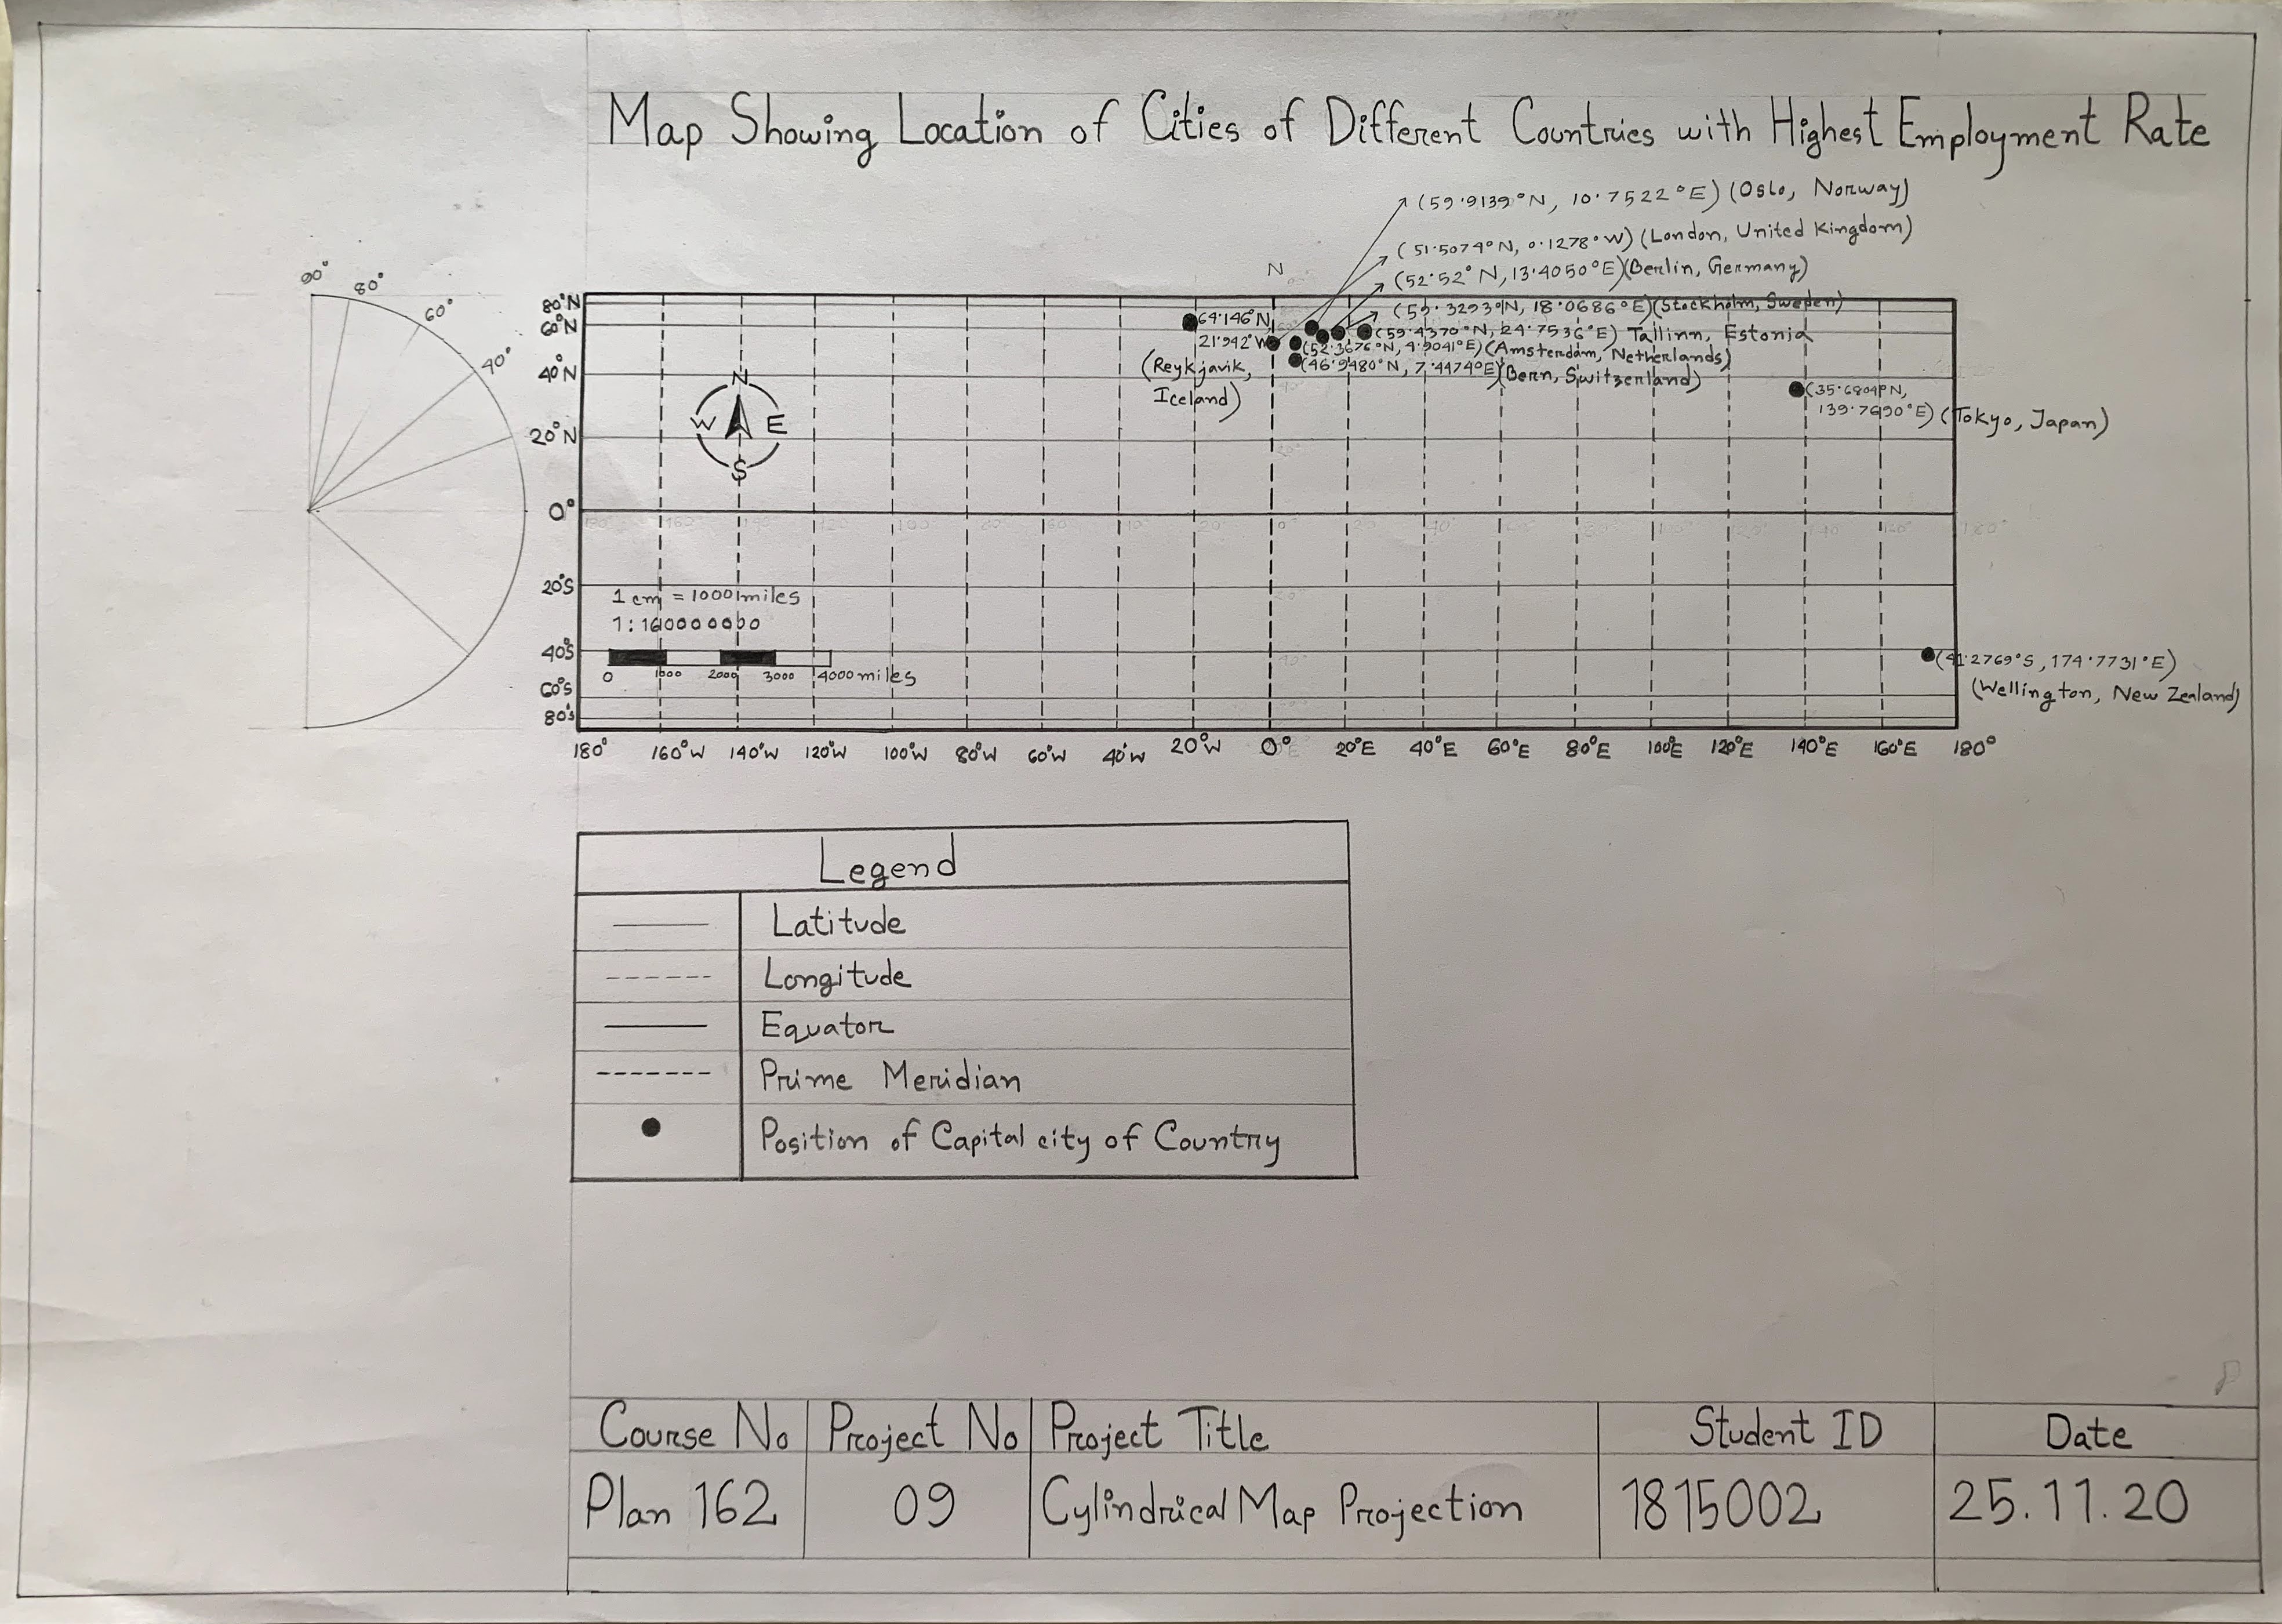 Map Showing Location of Cities of Different Countries with Highest Employment Rate
(59.9139°N, 10.7522°E) (Oslo, Norway)
(51.5074°N, 0.1278°W) (London, United Kingdom)
(52.52°N, 13.4050°E) (Berlin, Germany)
(59.3293°N, 18.0686°E) (Stockholm, Sweden)
(59.4370°N, 24.7536°E) Tallinn, Estonia
(52.3676°N, 4.9041°E) (Amsterdam, Netherlands)
(46.9480°N, 7.4474°E) (Bern, Switzerland)
64.146°N
21.942°W
(Reykjavik,
Iceland)
(35.6804°N,
139.7690°E) (Tokyo, Japan)
(41.2769°S, 174.7731°E)
(Wellington, New Zealand)
90°
80°
60°
40°
N
80°N
60°N
40°N
20°N
0°
20°S
40°S
60°S
80°S
N
W E
S
180° 160° 140° 120° 100° 80° 60° 40° 20° 0° 20° 40° 60° 80° 100° 120° 140 160° 180°
1 cm = 1000 miles
1:160000000
0 1000 2000 3000 4000 miles
180° 160°W 140°W 120°W 100°W 80°W 60°W 40°W 20°W 0° 20°E 40°E 60°E 80°E 100°E 120°E 140°E 160°E 180°
Legend
Latitude
Longitude
Equator
Prime Meridian
Position of Capital city of Country
Course No Project No Project Title Student ID Date
Plan 162 09 Cylindrical Map Projection 1815002 25.11.20